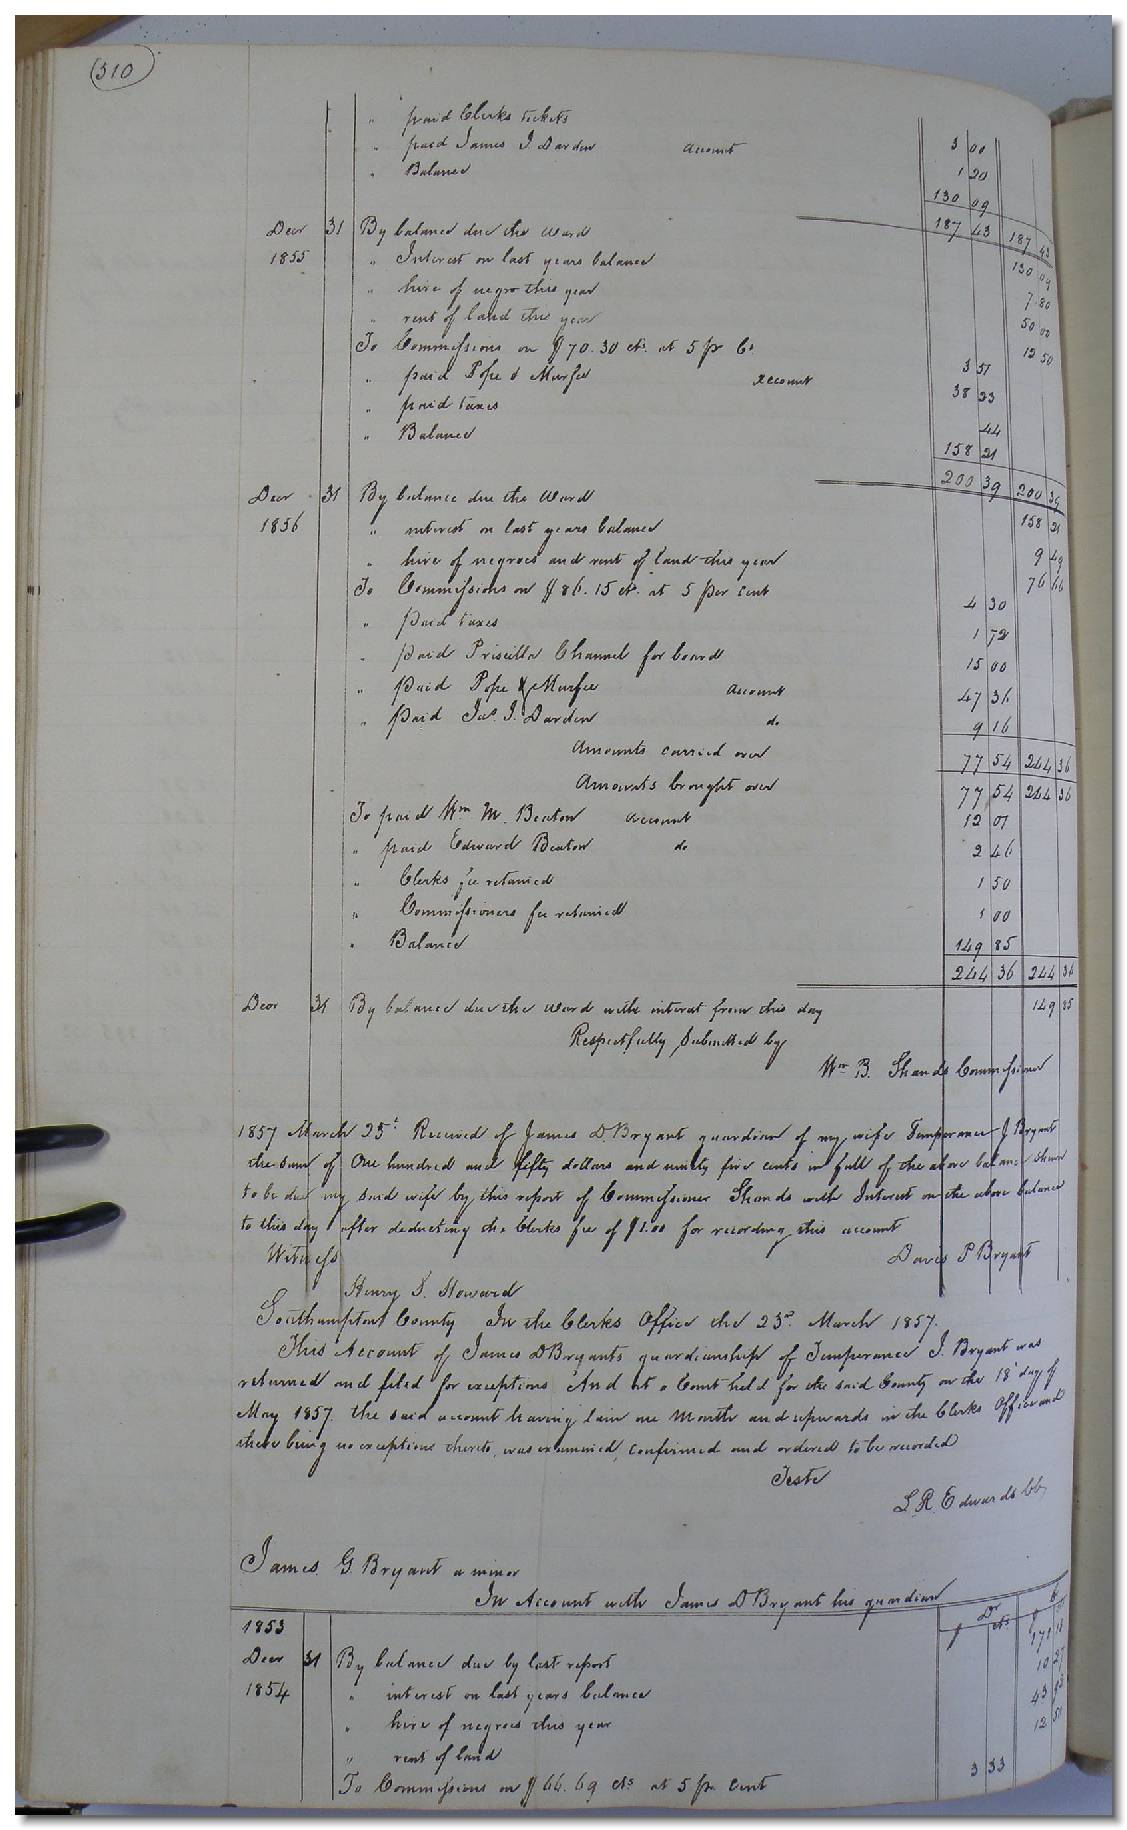 (510)
" paid Clerks tickets 3 00
" paid James J. Darden Account 1 20
" Balance 130 09
187 43 187 43
Decr 31 By balance due the Ward 130 09
1855 " Interest on last years balance 7 80
" hire of negro this year 50 00
" rent of land this year 12 50
To Commissions on $70.30 cts. at 5 pr Ct 3 51
" paid Pope & Murfee Account 38 23
" paid taxes 44
" Balance 158 21
200 39 200 39
Decr 31 By balance due the Ward 158 21
1856 " interest on last years balance 9 49
" hire of negroes and rent of land this year 76 66
To Commissions on $86.15 cts. at 5 per cent 4 30
" Paid taxes 1 72
" paid Priscilla Channel for board 15 00
" paid Pope & Murfee Account 47 36
" paid Jas. J. Darden do 9 16
Amounts carried over 77 54 244 36
Amounts brought over 77 54 244 36
To paid Wm M. Beaton Account 12 01
" paid Edward Beaton do 2 46
" Clerks fee retained 1 50
" Commissioners fee retained 1 00
" Balance 149 85
244 36 244 36
Decr 31 By balance due the Ward with interest from this day 149 85
Respectfully Submitted by
Wm B. Shands Commissioner
1857 March 25t Received of James D Bryant guardian of my wife Temperance J Bryant
the sum of One hundred and fifty dollars and ninety five cents in full of the above balance shewn
to be due my said wife by this report of Commissioner Shands with Interest on the above balance
to this day after deducting the Clerks fee of $1.00 for recording this account
Witness Davis P Bryant
Henry S. Howard
Southampton County In the Clerks Office the 23d. March 1857.
This Account of James D Bryants guardianship of Temperance J. Bryant was
returned and filed for exceptions And at a Court held for the said County on the 18t day of
May 1857 the said account having lain one Month and upwards in the Clerks Office and
there being no exceptions thereto, was examined, confirmed and ordered to be recorded
Teste
L. R. Edwards CC
James G. Bryant a minor
In Account with James D Bryant his guardian
1853 $ Dr cts $
Decr 31 By balance due by last report 171 18
1854 " interest on last years balance 10 27
" hire of negroes this year
" rent of land
To Commissions on $66.69 cts at 5 pr Cent 3 33